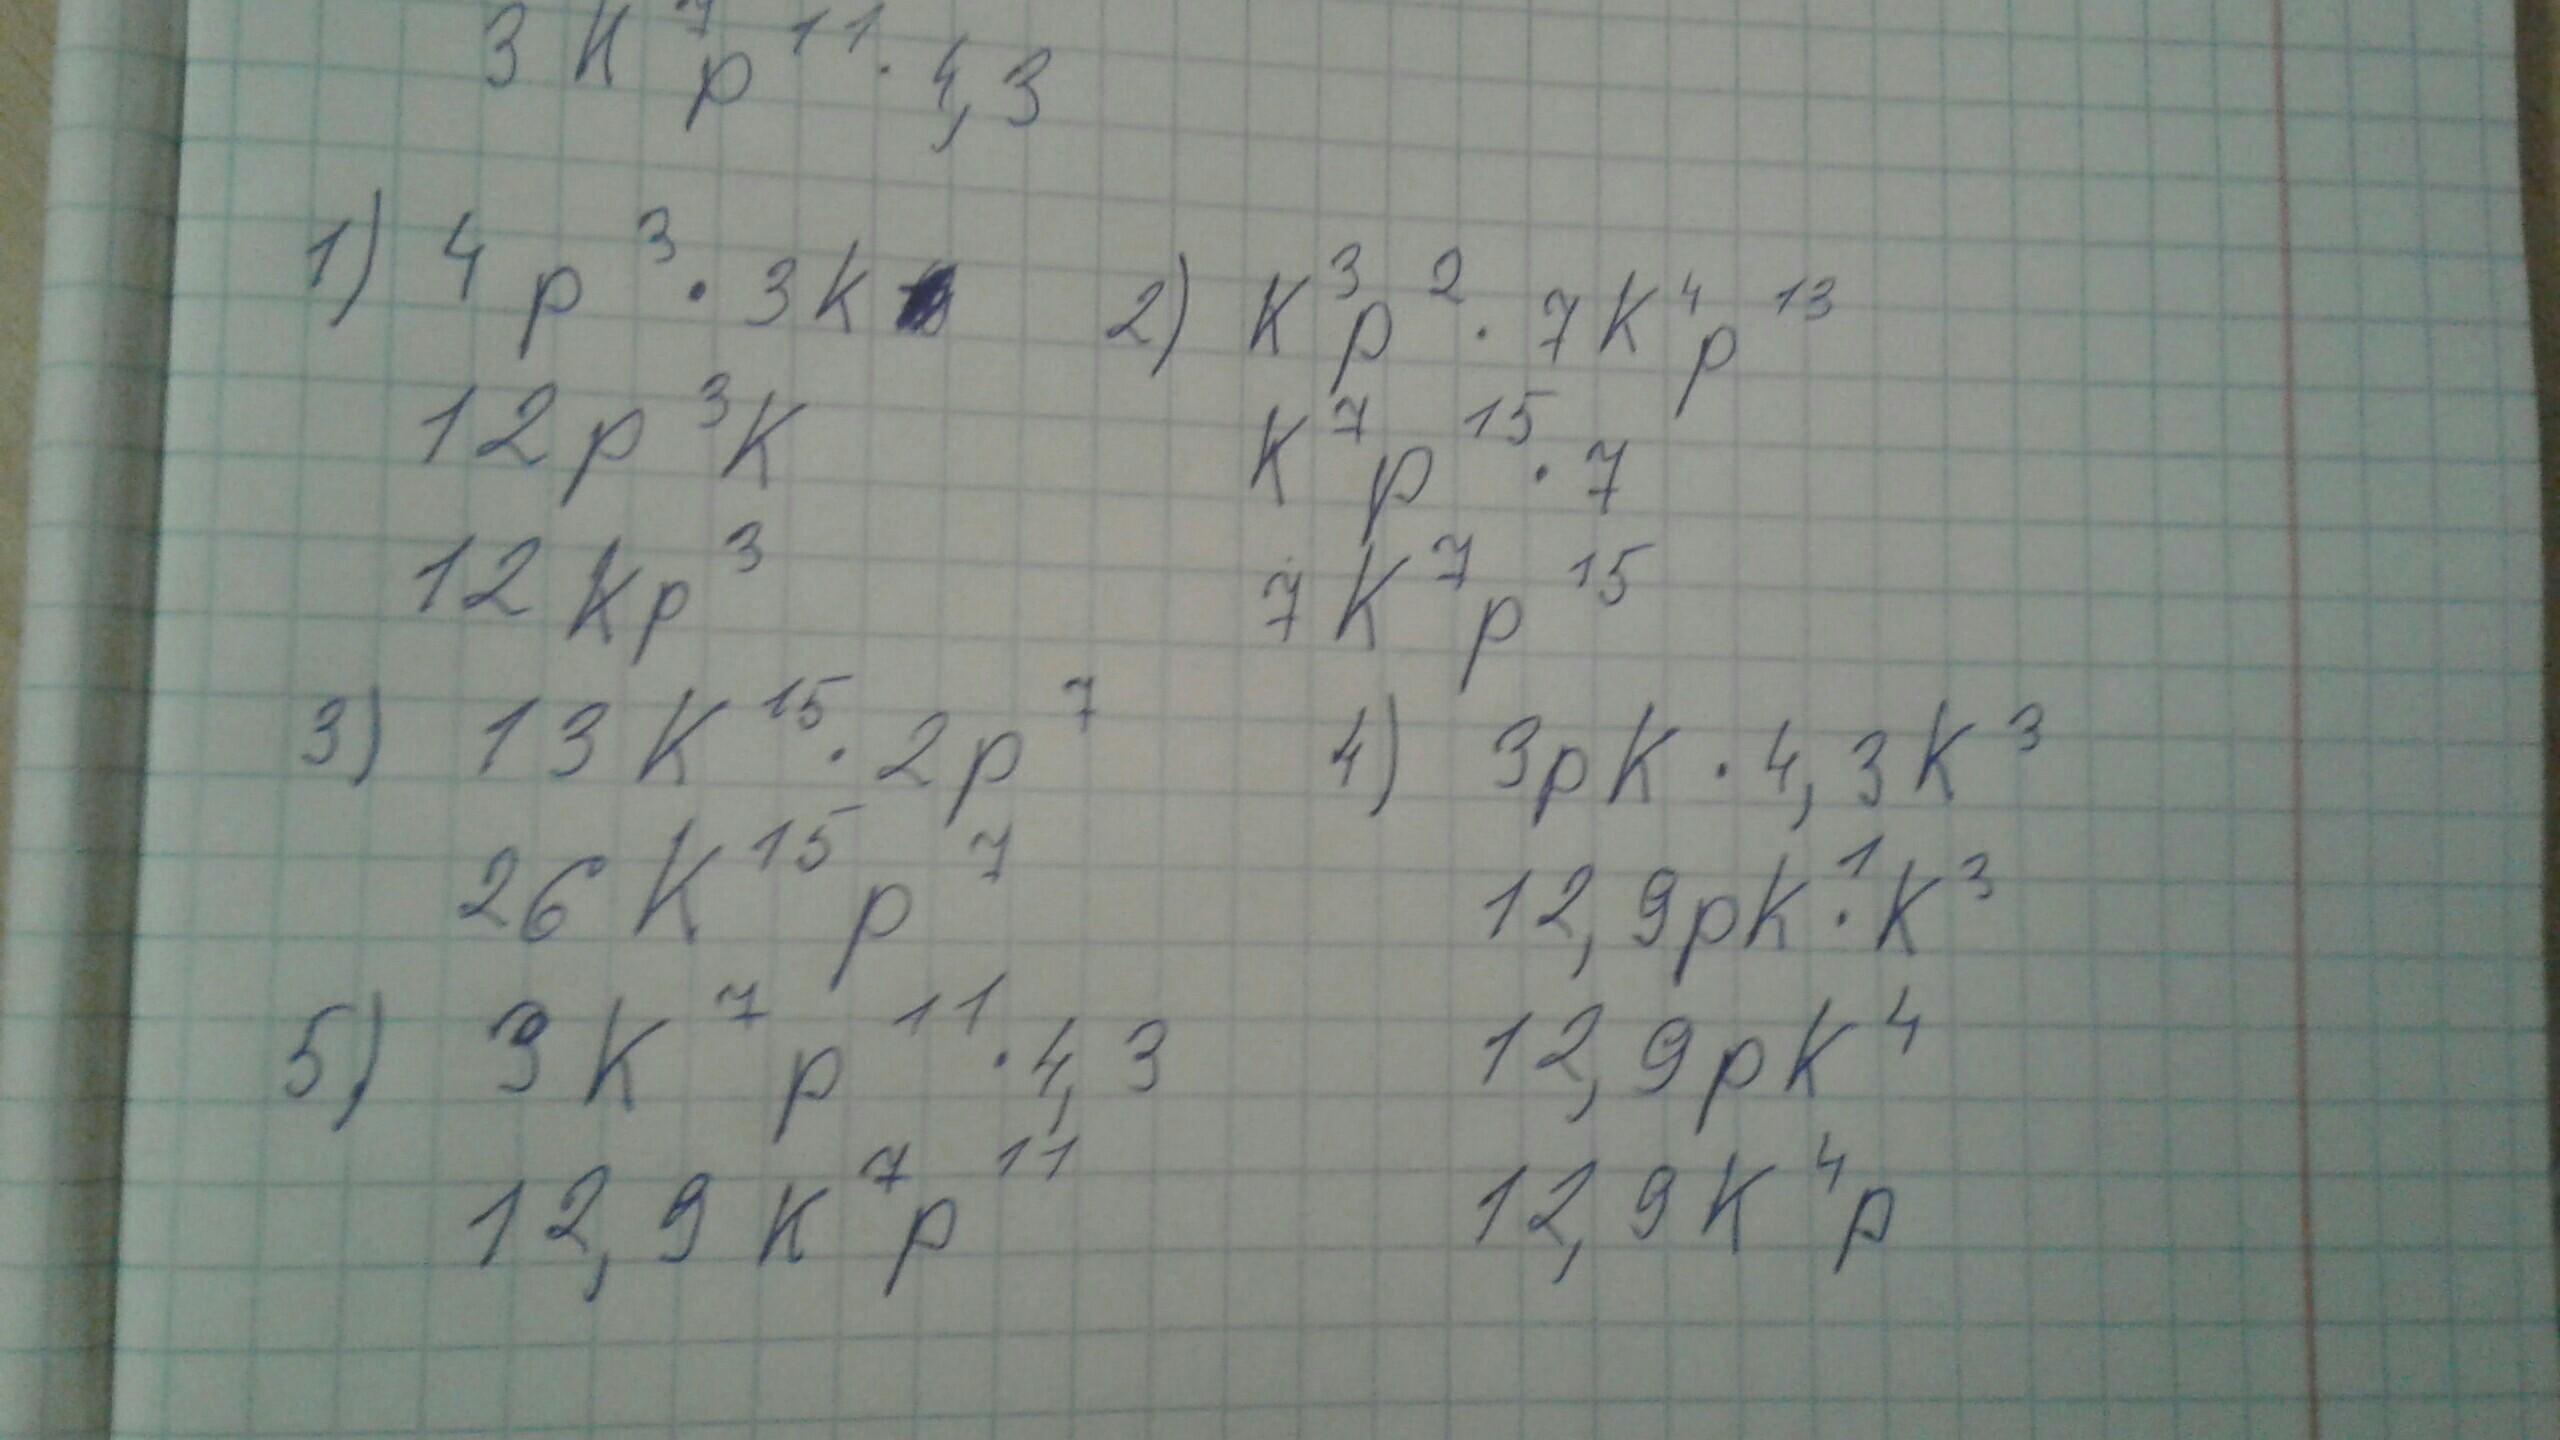 3k⁷p¹¹·4,3
1) 4p³·3k
12p³k
12kp³
2) k³p²·7k⁴p¹³
k⁷p¹⁵·7
7k⁷p¹⁵
3) 13k¹⁵·2p⁷
26k¹⁵p⁷
4) 3pk·4,3k³
12,9pk¹·k³
12,9pk⁴
12,9k⁴p
5) 3k⁷p¹¹·4,3
12,9k⁷p¹¹